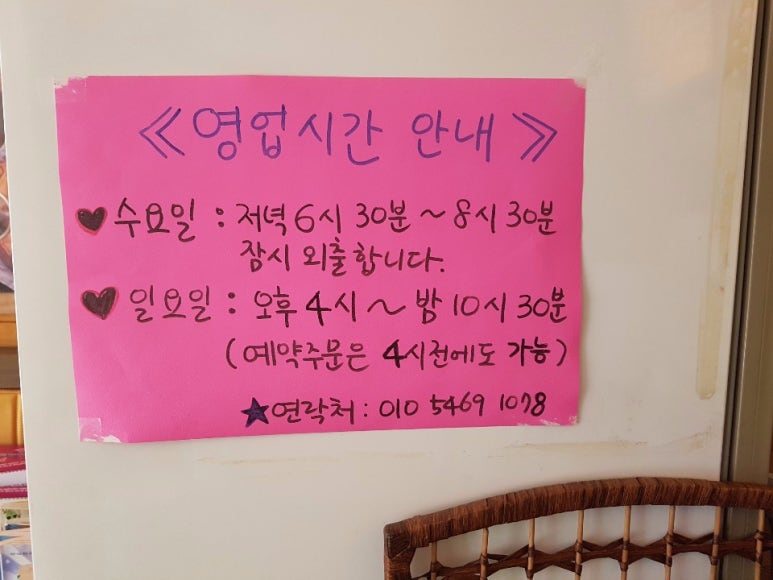 ≪영업시간 안내≫
♥수요일 : 저녁 6시 30분 ~ 8시 30분
잠시 외출합니다.
♥일요일 : 오후 4시 ~ 밤 10시 30분
(예약주문은 4시전에도 가능)
★연락처 : 010 5469 1078